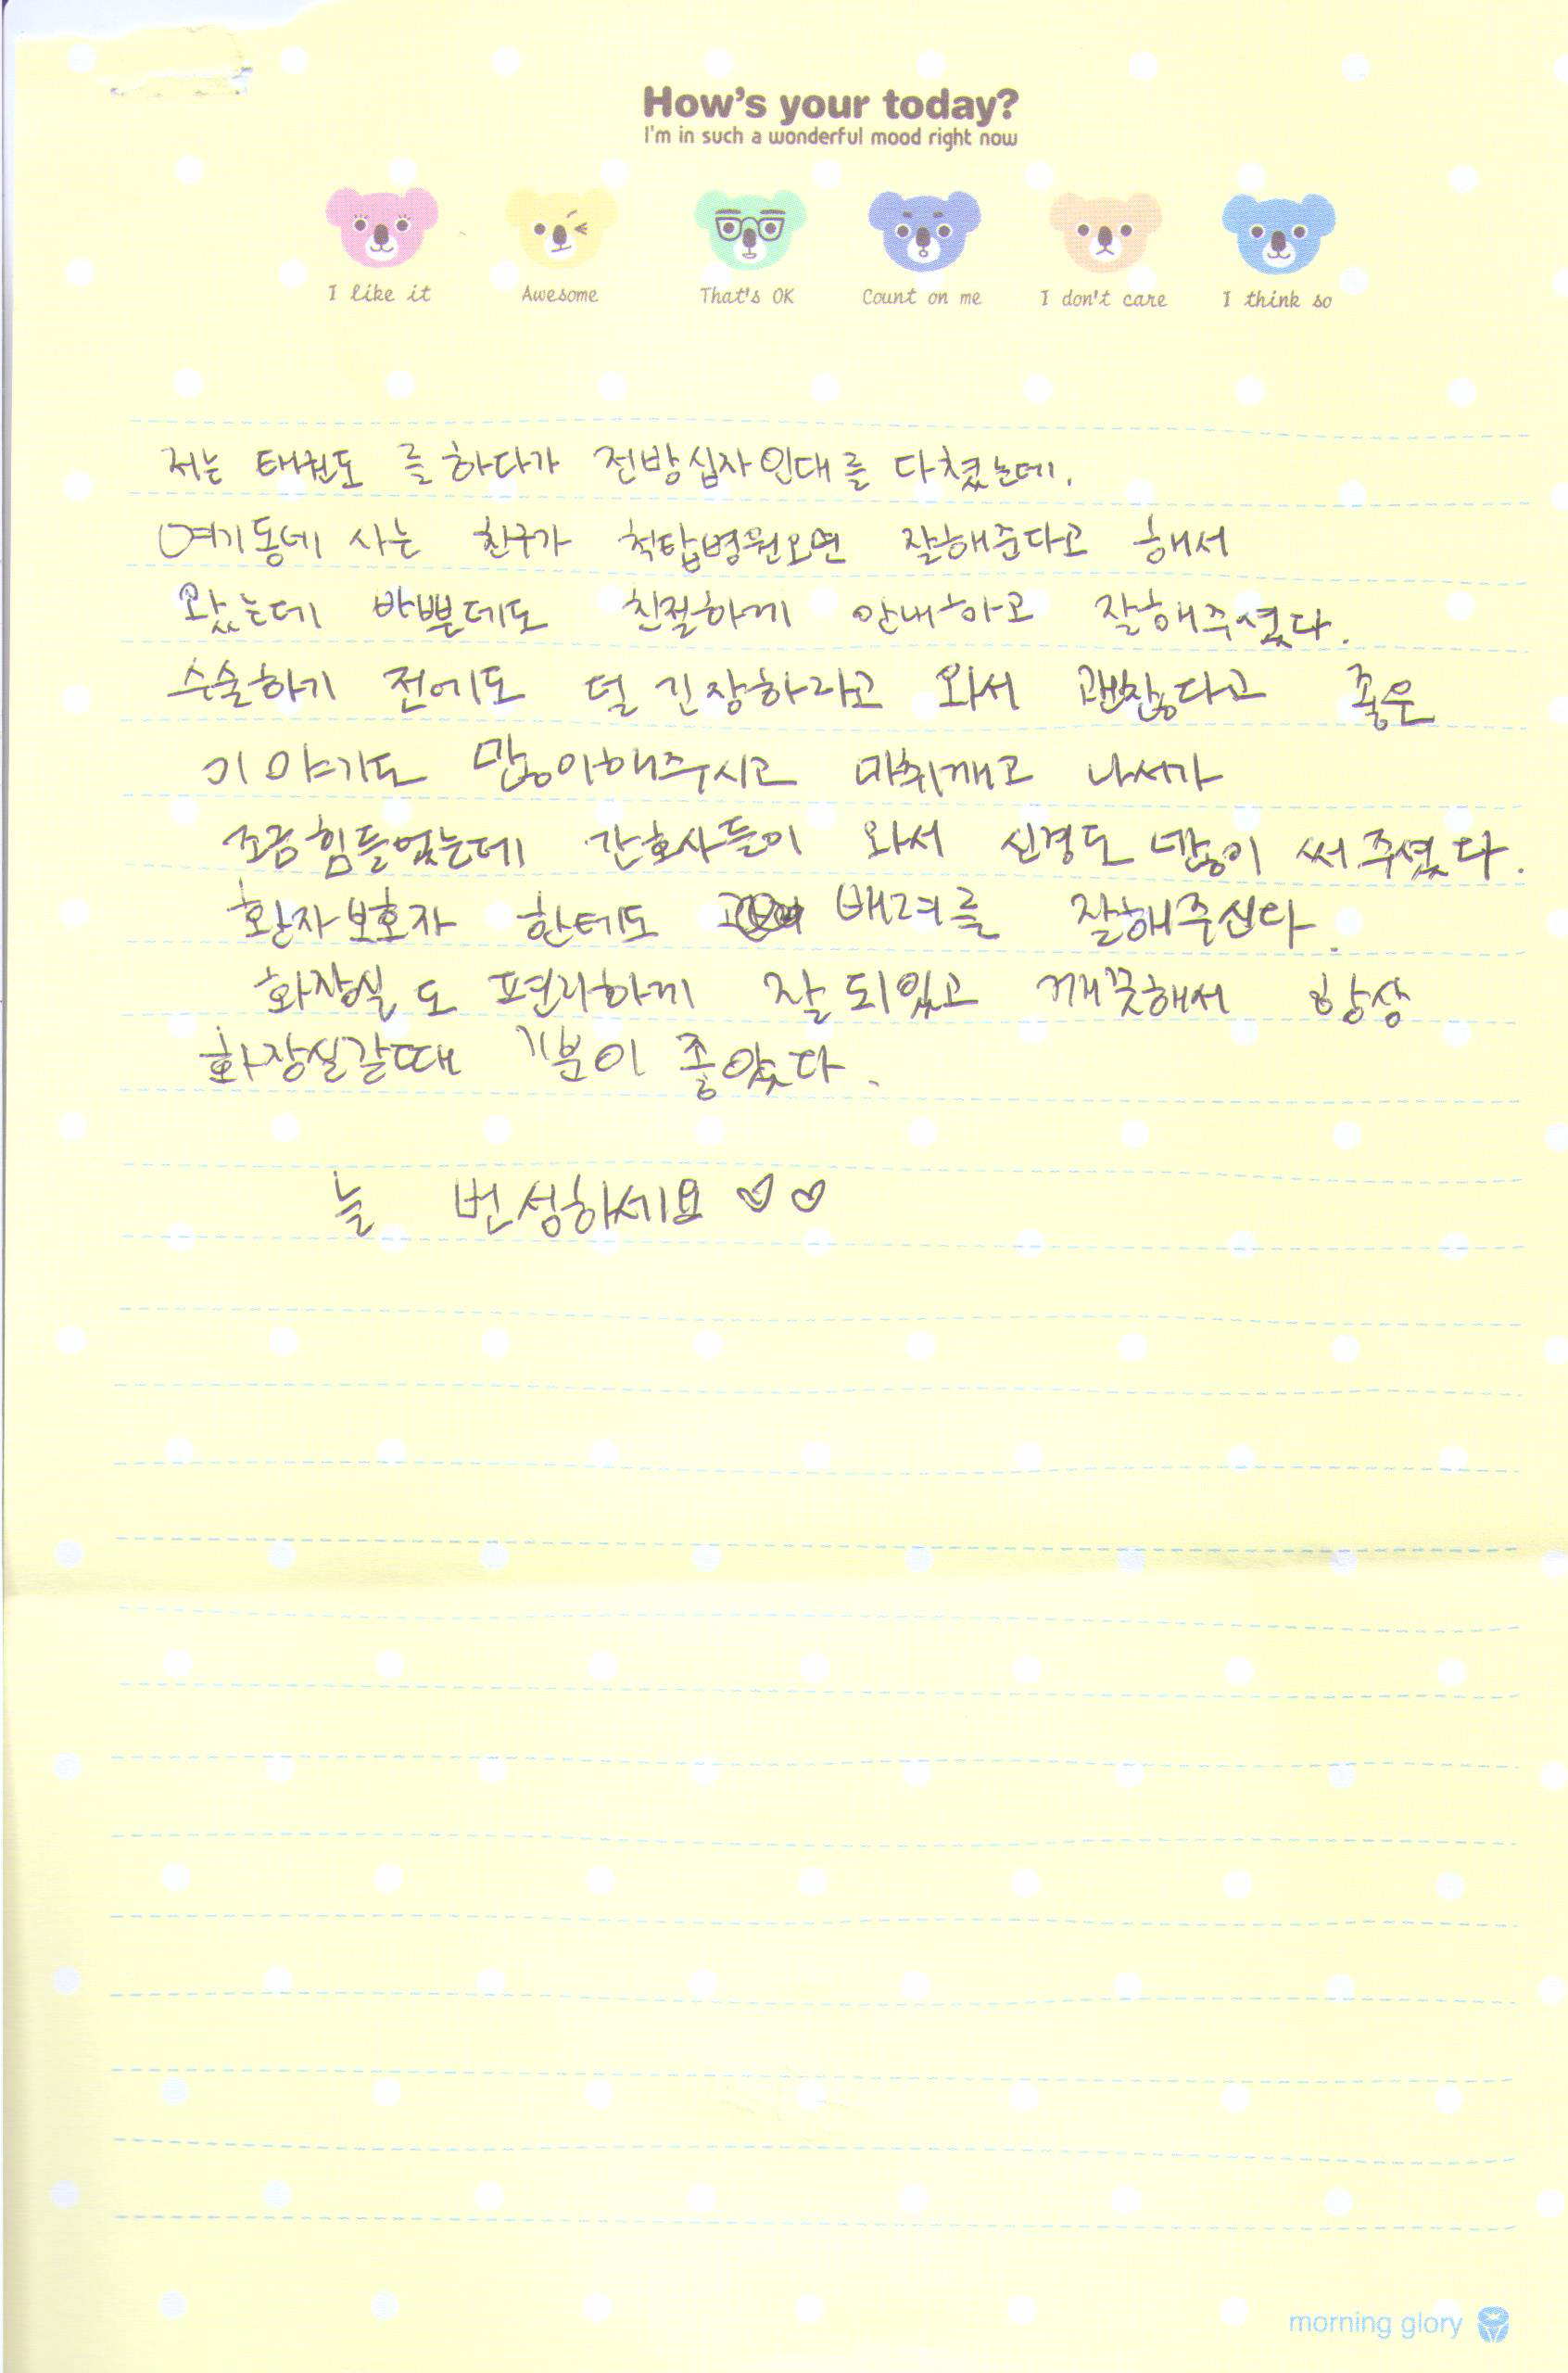 How's your today?
I'm in such a wonderful mood right now
I like it Awesome That's OK Count on me I don't care I think so
저는 태권도 를 하다가 전방십자인대를 다쳤는데.
여기동네 사는 친구가 척탑병원오면 잘해준다고 해서
왔는데 바쁠데도 친절하게 안내하고 잘해주셨다.
수술하기 전에도 덜 긴장하라고 와서 괜찮다고 좋은
이야기도 많이해주시고 마취깨고 나서가
조금힘들었는데 간호사들이 와서 신경도 많이 써주셨다.
환자보호자 한테도 배려를 잘해주신다.
화장실 도 편리하게 잘 되있고 깨끗해서 항상
화장실갈때 기분이 좋았다.
늘 번성하세요 ♡♡
morning glory